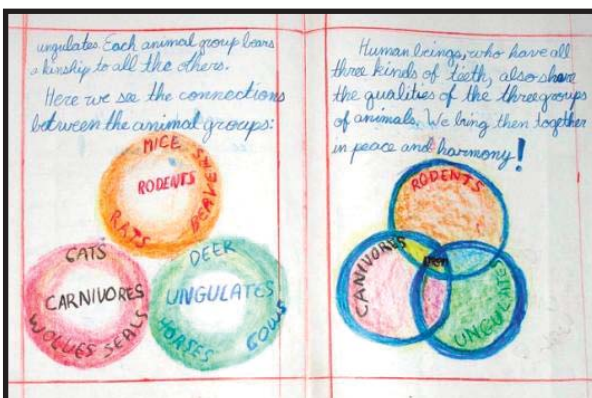 ungulates. Each animal group bears
a kinship to all the others.
Here we see the connections
between the animal groups:
MICE
RODENTS
BEAVERS
RATS
CATS
CARNIVORES
WOLVES SEALS
DEER
UNGULATES
HORSES
COWS
Human beings, who have all
three kinds of teeth, also share
the qualities of the three groups
of animals. We bring then together
in peace and harmony!
RODENTS
CANIVORES
UNGULATE